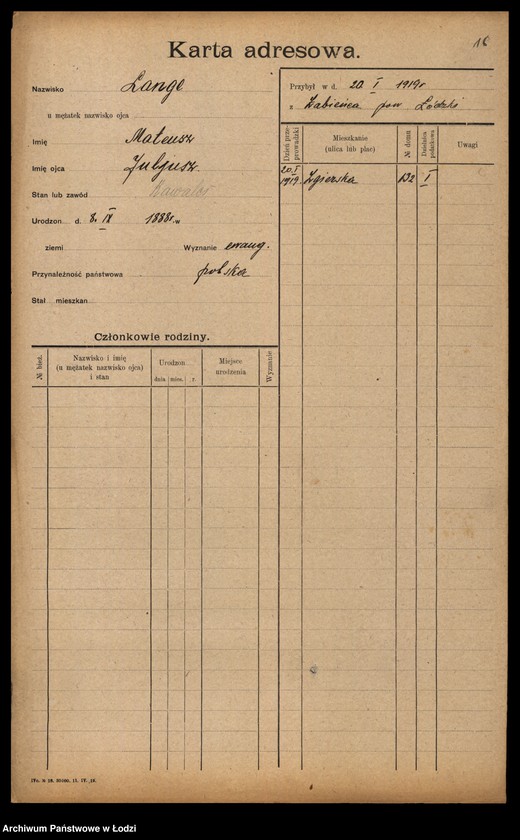 16
Karta adresowa.
Nazwisko Lange
u mężatek nazwisko ojca
Imię Mateusz
Imię ojca Juljusz
Stan lub zawód Kawaler
Urodzon d. 8. IX 1888 r. w
ziemi Wyznanie ewang.
Przynależność państwowa polska
Stał mieszkan
Członkowie rodziny.
№ bież. Nazwisko i imię (u mężatek nazwisko ojca) i stan Urodzon dnia mies. r. Miejsce urodzenia Wyznanie
Przybył w d. 20 I 1919 r
z Żabieńca pow Łódzki
Dzień przeprowadzki Mieszkanie (ulica lub plac) № domu Dzielnica podatkowa Uwagi
20. I 1919. Zgierska 132 I
Archiwum Państwowe w Łodzi